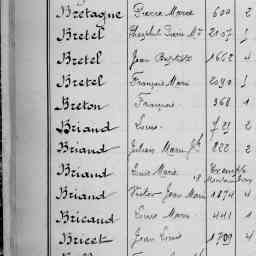 Bretagne Pierre Marie 600 2
Bretel Théophile Pierre Mie 2107 1
Bretel Jean Baptiste 1662 4
Bretel François Marie 2090 1
Breton François 368 1
Briand Louis 721 2
Briand Julien Marie Jh 822 2
Briand Louis Marie Exempté
Briand Victor Jean Marie 1874 4
Bricaud Louis Marie 441 1
Bricet Jean Louis 1799 4